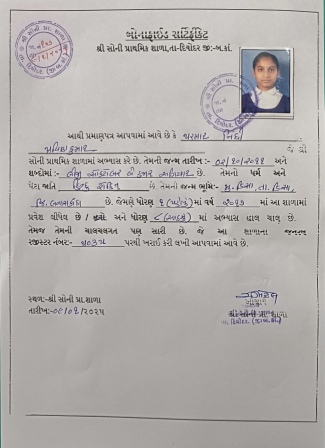 બોનાફાઈડ સર્ટીફીકેટ
શ્રી સોની પ્રાથમિક શાળા,તા-દિયોદર જી:-બ.કાં.
આથી પ્રમાણપત્ર આપવામાં આવે છે કે પરમાર નિધી
સોની પ્રાથમિક શાળામાં અભ્યાસ કરે છે. તેમની જન્મ તારીખ:- ૦૨/૧૦/૨૦૧૧ અને
શબ્દોમાં બીજી ઓક્ટોબર બે હજાર અગિયાર છે. તેમનો ધર્મ અને
પેટા જાતિ હિન્દુ છે. તેમની જન્મ ભૂમિ:- મુ. ડિસા, તા. ડિસા,
જિ. બનાસકાંઠા છે. જેમણે ધોરણ ૧ (પહેલું) માં વર્ષ ૨૦૧૭ માં આ શાળામાં
પ્રવેશ લીધેલ છે / અને ધોરણ ૮ (આઠમું) માં અભ્યાસ હાલ ચાલુ છે.
તેમજ તેમની ચાલચલગત પણ સારી છે. જે આ શાળાના જનરલ
રજીસ્ટર નંબર:- પરથી ખરાઈ કરી લખી આપવામાં આવે છે.
સ્થળ:-શ્રી સોની પ્રા.શાળા
તારીખ:- /૦૧/૨૦૨૫
આચાર્ય
શ્રી સોની પ્રા. શાળા
તા. દિયોદર, જી.બ.કાં.